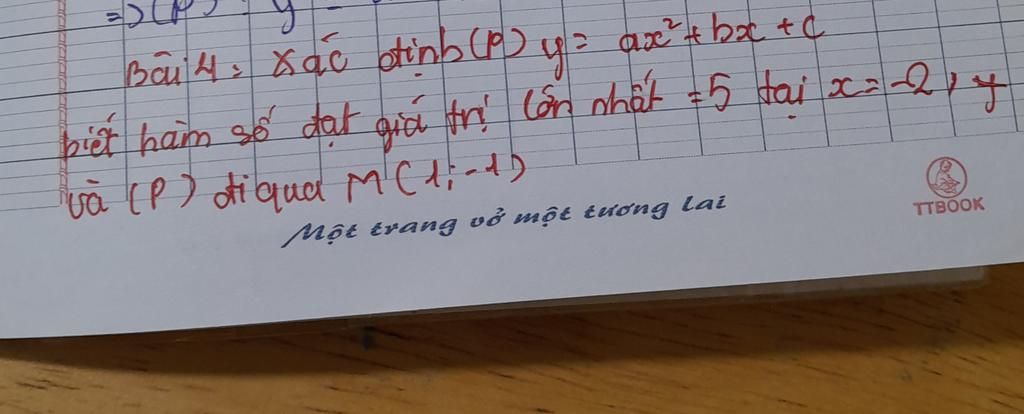 => (P) : y =
Bài 4: Xác định (P) y = ax² + bx + c
biết hàm số đạt giá trị lớn nhất = 5 tại x = -2, y
và (P) đi qua M (1; -1)
Một trang vở một tương lai
TTBOOK